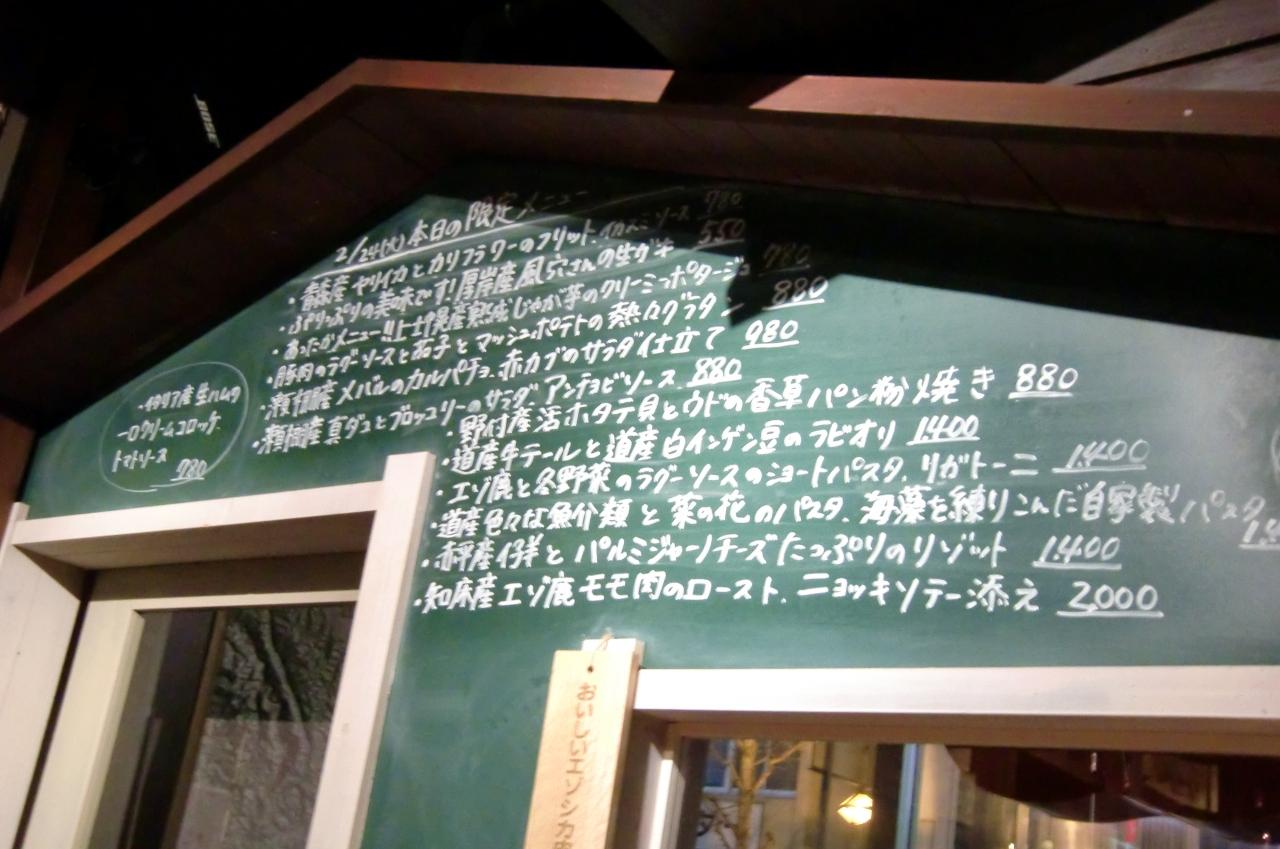 BOSE
2/24(火)本日の限定メニュー
・青森産ヤリイカとカリフラワーのフリット、イカスミソース 780
・ぷりっぷりの美味です!厚岸産風穴さんの生ガキ 550
・あったかメニュー!!上士幌産熟成じゃが芋のクリーミィポタージュ 780
・豚肉のラグーソースと茄子とマッシュポテトの熱々グラタン 880
・瀬棚産メバルのカルパチョ、赤カブのサラダ仕立て 980
・瀬棚産真ダコとブロッコリーのサラダ、アンチョビソース 880
・野付産活ホタテ貝とウドの香草パン粉焼き 880
・道産牛テールと道産白インゲン豆のラビオリ 1400
・エゾ鹿と冬野菜のラグーソースのショートパスタ、リガトーニ 1400
・道産色々な魚介類と菜の花のパスタ、海藻を練りこんだ自家製パスタ
・赤平産仔羊とパルミジャーノチーズたっぷりのリゾット 1400
・知床産エゾ鹿モモ肉のロースト、ニョッキソテー添え 2000
・イタリア産生ハムの
一口クリームコロッケ
トマトソース
780
おいしいエゾシカ肉